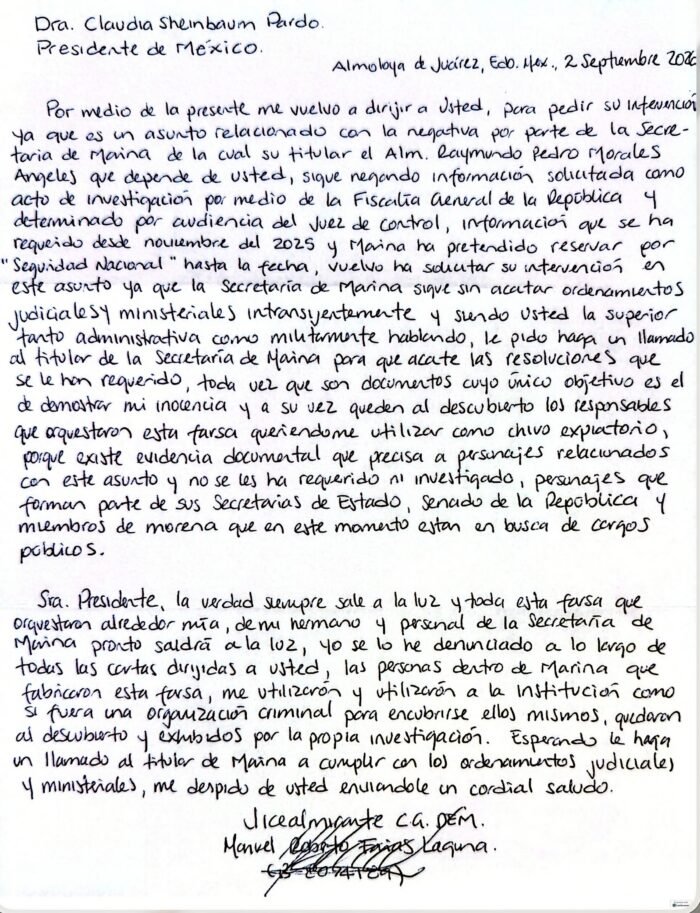 Dra. Claudia Sheinbaum Pardo.
Presidente de México.
Almoloya de Juárez, Edo. Mex., 2 Septiembre 2026
Por medio de la presente me vuelvo a dirijir a Usted, para pedir su intervención
ya que es un asunto relacionado con la negativa por parte de la Secre-
taria de Marina de la cual su titular el Alm. Raymundo Pedro Morales
Angeles que depende de usted, sigue negando información solicitada como
acto de investigación por medio de la Fiscalía General de la República y
determinado por audiencia del Juez de control, información que se ha
requeido desde noviembre del 2025 y Marina ha pretendido reservar por
"Seguidad Nacional" hasta la fecha, vuelvo ha solicitar su intervención en
este asunto ya que la Secretaría de Marina sigue sin acatar ordenamientos
judiciales y ministeriales intransijentemente y siendo Usted la superior
tanto administrativa como militarmente hablando, le pido haga un llamado
al titular de la Secretaría de Marina para que acate las resoluciones que
se le han requerido, toda vez que son documentos cuyo único objetivo es el
de demostrar mi inocencia y a su vez queden al descubierto los responsables
que orquestaron esta farsa queriendome utilizar como chivo expiatorio,
porque existe evidencia documental que precisa a personajes relacionados
con este asunto y no se les ha requerido ni investigado, personajes que
forman parte de sus Secretarias de Estado, Senado de la República y
miembros de morena que en este momento estan en busca de cargos
públicos.
Sra. Presidente, la verdad siempre sale a la luz y toda esta farsa que
orquestaron alrededor mía, de mi hermano y personal de la Secretaría de
Marina pronto saldrá a la luz, yo se lo he denunciado a lo largo de
todas las cartas dirijidas a usted, las personas dentro de Marina que
fabricaron esta farsa, me utilizarón y utilizarón a la Institución como
si fuera una organización criminal para encubrirse ellos mismos, quedaran
al descubierto y exhibidos por la propia investigación. Esperando le haga
un llamado al titular de Marina a cumplir con los ordenamientos judiciales
y ministeriales, me despido de usted enviandole un cordial saludo.
Vicealmirante C.G. DEM.
Manuel Roberto Farias Laguna.